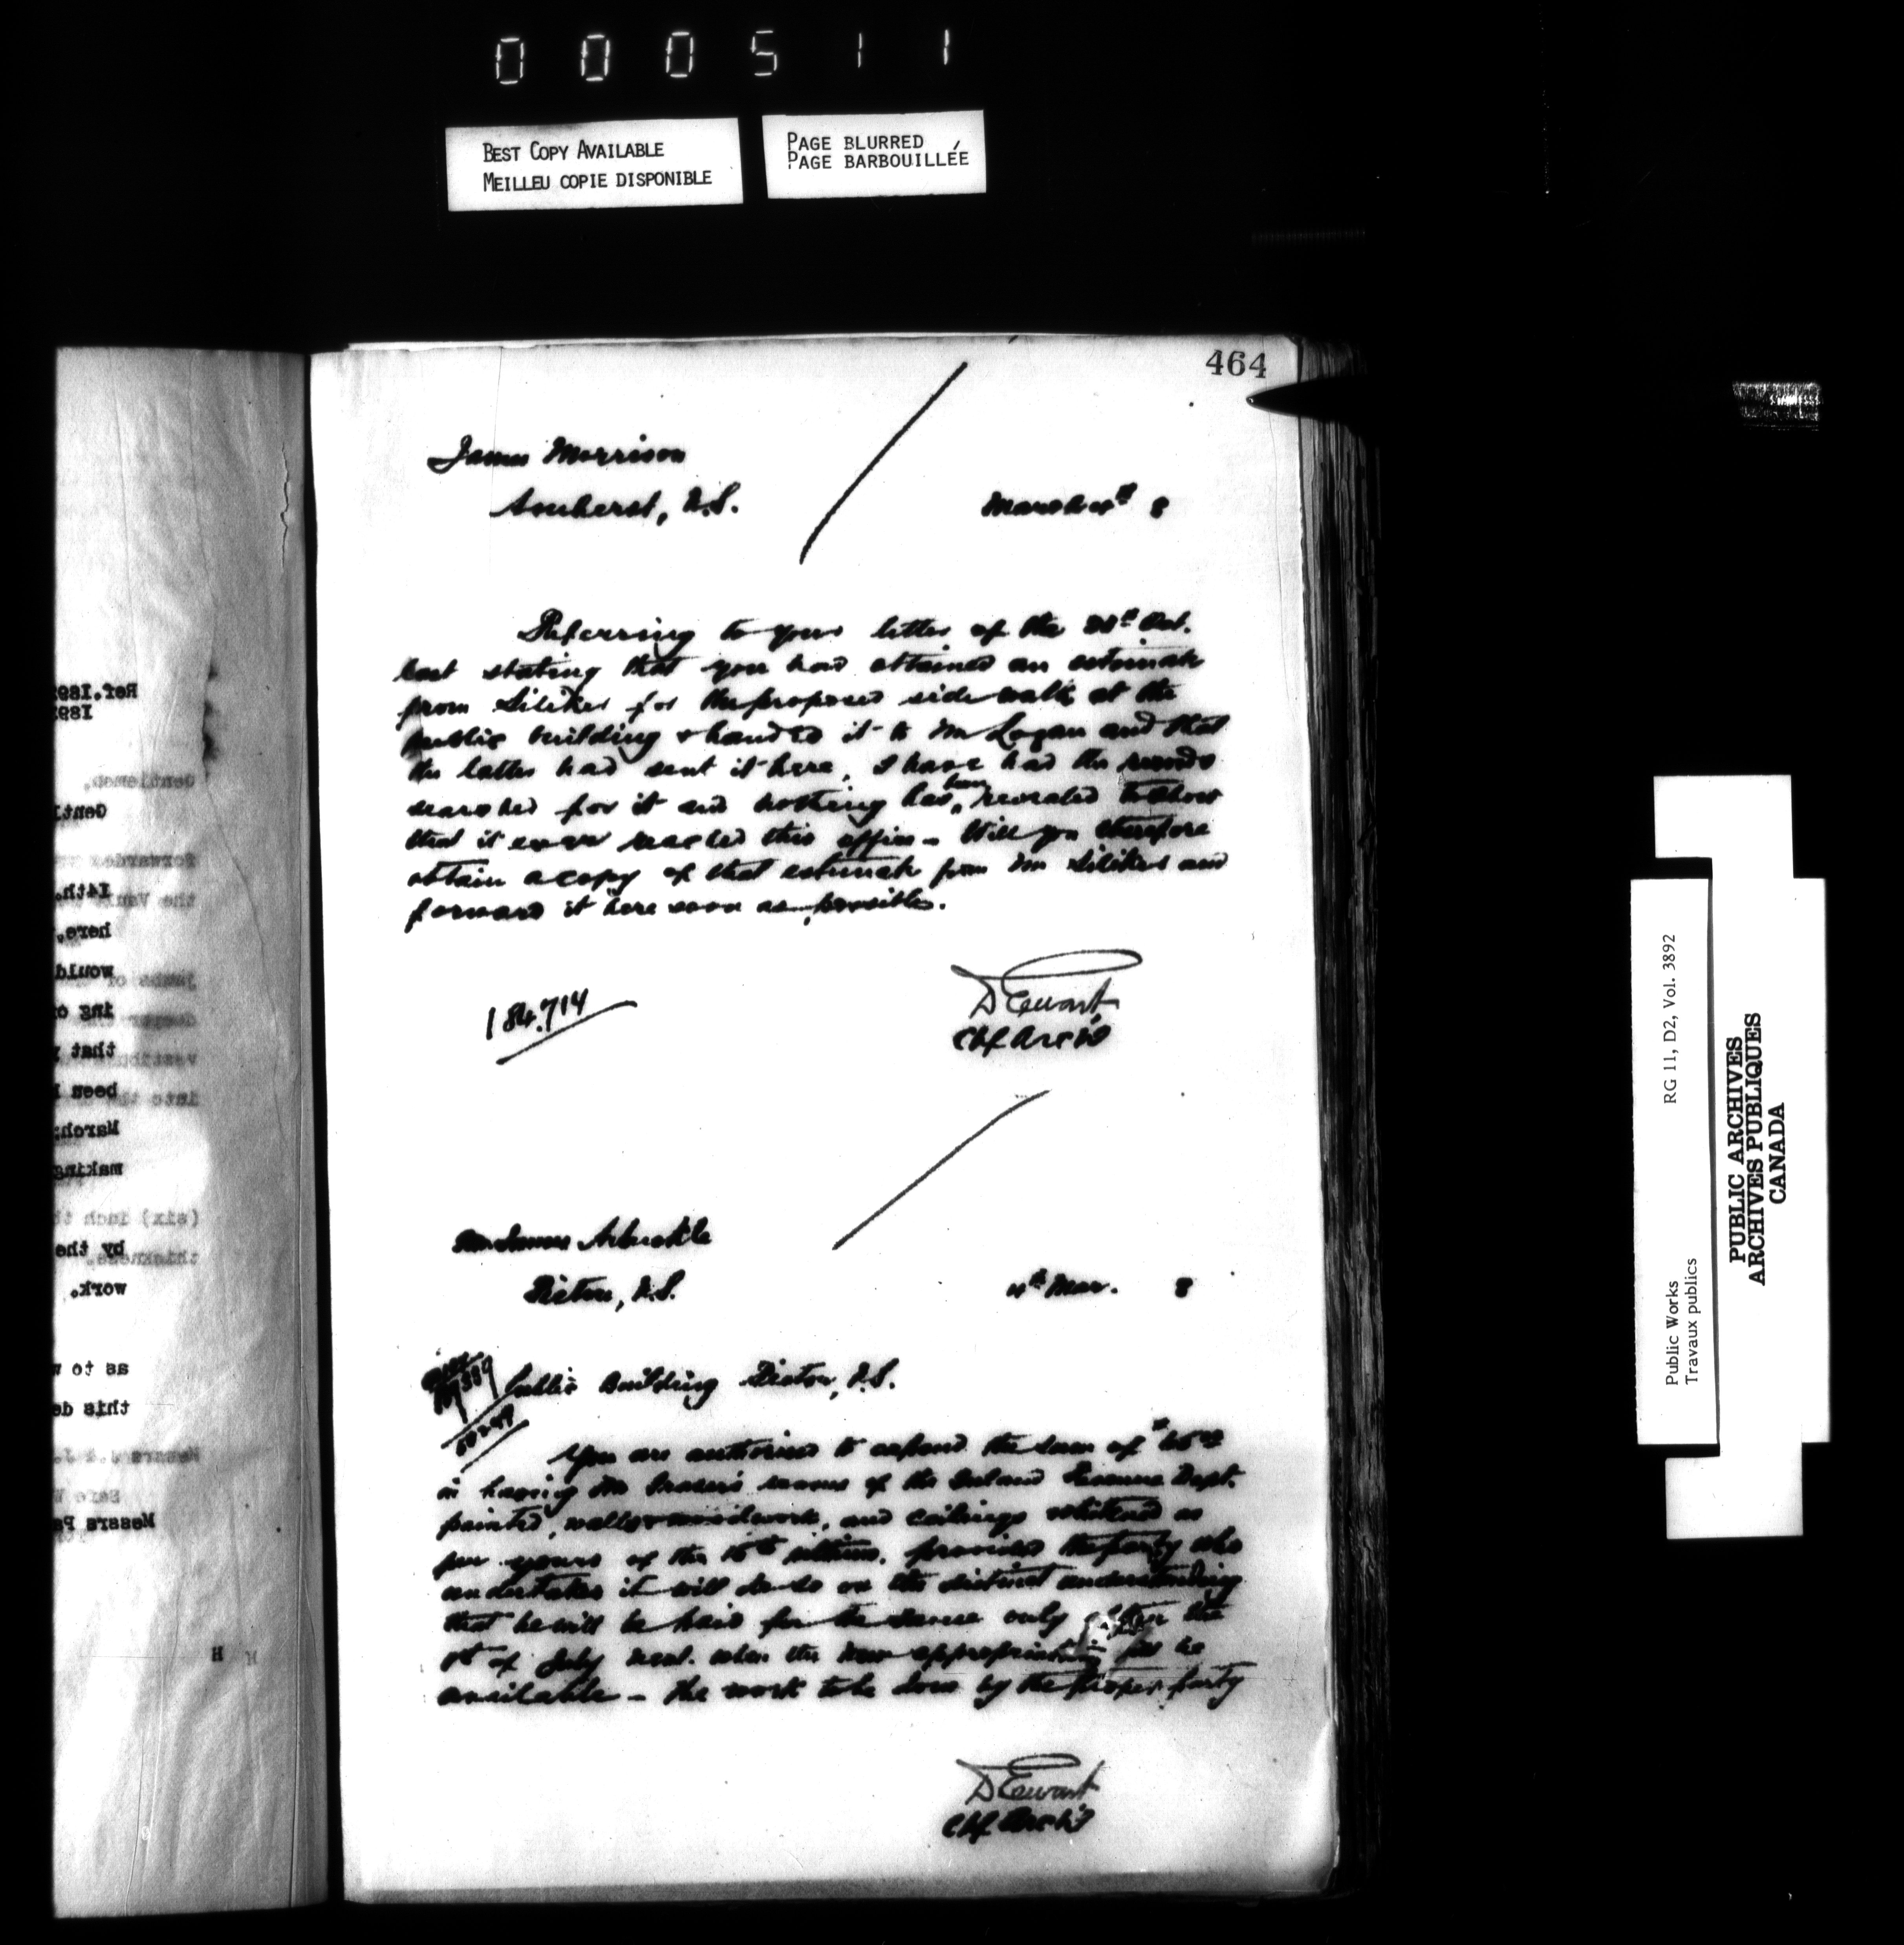 000511
BEST COPY AVAILABLE
MEILLEU COPIE DISPONIBLE
PAGE BLURRED
PAGE BARBOUILLÉE
464
James Morrison
Amherst, N.S.
March 4th 8
Referring to your letter of the Oct.
last stating that you had obtained an estimate
from for the proposed side walk at the
public building & handed it to Mr Logan and that
the latter had sent it here, I have had the records
searched for it and nothing has been revealed to show
that it ever reached this office. Will you therefore
obtain a copy of that estimate from Mr and
forward it here soon as possible.
184.714
D Ewart
Chf Archt
Mr James Arbuckle
Pictou, N.S.
4th Mar. 8
Public Building Pictou, N.S.
You are authorised to expend the sum of
in having Mr Fraser's rooms of the Inland Revenue Dept.
painted, walls & woodwork, and ceilings whitened as
per yours of the 15th ultimo, provided the party who
undertakes it will do so on the distinct understanding
that he will be paid for the same only after the
1st of July next when the new appropriation will be
available - the work to be done by the proper party
D Ewart
Chf Archt
Ref.189
189
Gentlemen,
Genti
forwarded
14th.
the Vault
here,
would
jambs of
ing o
deeper
that
vestibu
been
into the
March;
making
(six) inch th
by the
thickness.
work.
as to w
this de
Messrs J.
Messrs P
H
Public Works
Travaux publics
RG 11, D2, Vol. 3892
PUBLIC ARCHIVES
ARCHIVES PUBLIQUES
CANADA